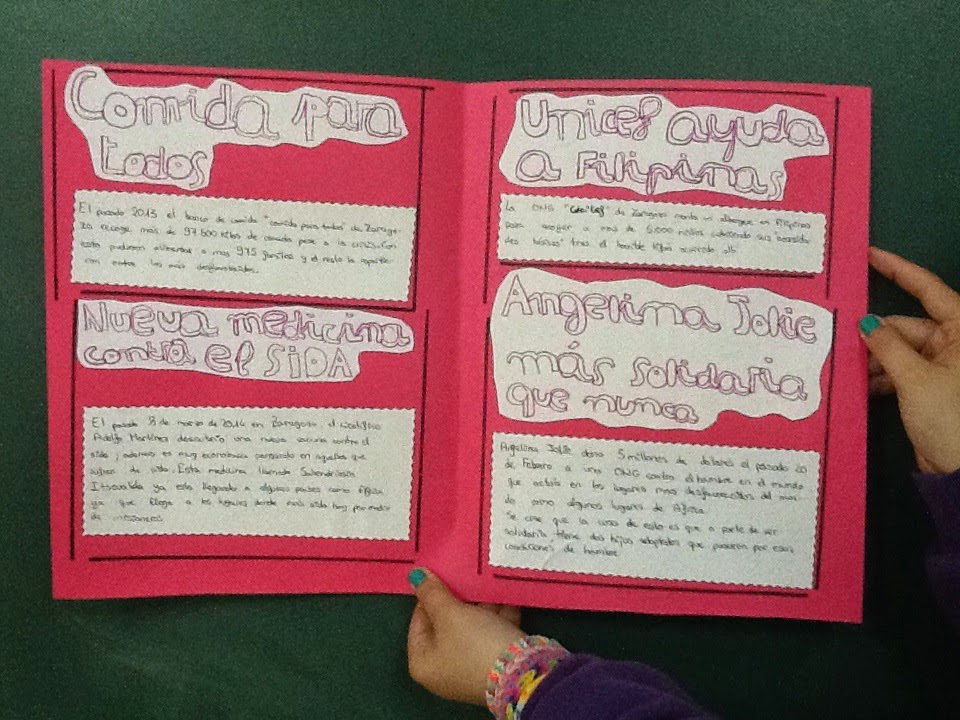 Comida para
todos
El pasado 2013 el banco de comida "comida para todos" de Zarago-
za recogió mas de 97.800 Kilos de comida pese a la crisis. Con
esto pudieron alimentar a mas 975 familias y el resto lo
con entre los mas
Nueva medicina
contra el SIDA
El pasado 8 de marzo de 2014 en Zaragoza, el científico
Adolfo Martínez descubrió una nueva vacuna contra el
sida, además es muy económica pensando en aquellos que
sufren de sida. Esta medicina llamada
ya esta llegando a algunos países como
ya que llega a los lugares donde más sida hay por medio
de misioneros.
Unicef ayuda
a Filipinas
La ONG de Zaragoza monta un albergue en Filipinas
para acoger a mas de 5.000 niños cubriendo sus necesida-
des básicas tras el terrible tifón ocurrido allí.
Angelima Jolie
más solidaria
que nunca
Angelina Jolie dono 5 millones de dolares el pasado 20
de Febrero a una ONG contra el hambre en el mundo
que actúa en los lugares mas desfavorecidos del mun-
do como algunos lugares de Africa.
Se cree que la causa de esto es que a parte de ser
solidaria tiene dos hijos adoptados que pasaron por esas
condiciones de hambre.